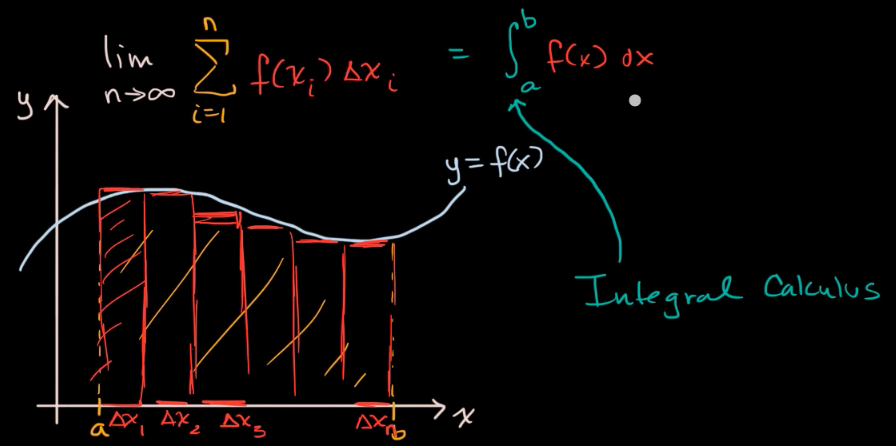 lim n→∞ n Σ i=1 f(xᵢ) Δxᵢ = ∫ₐᵇ f(x) dx
y
y = f(x)
Integral Calculus
a Δx₁ Δx₂ Δx₃ Δxₙ b
x